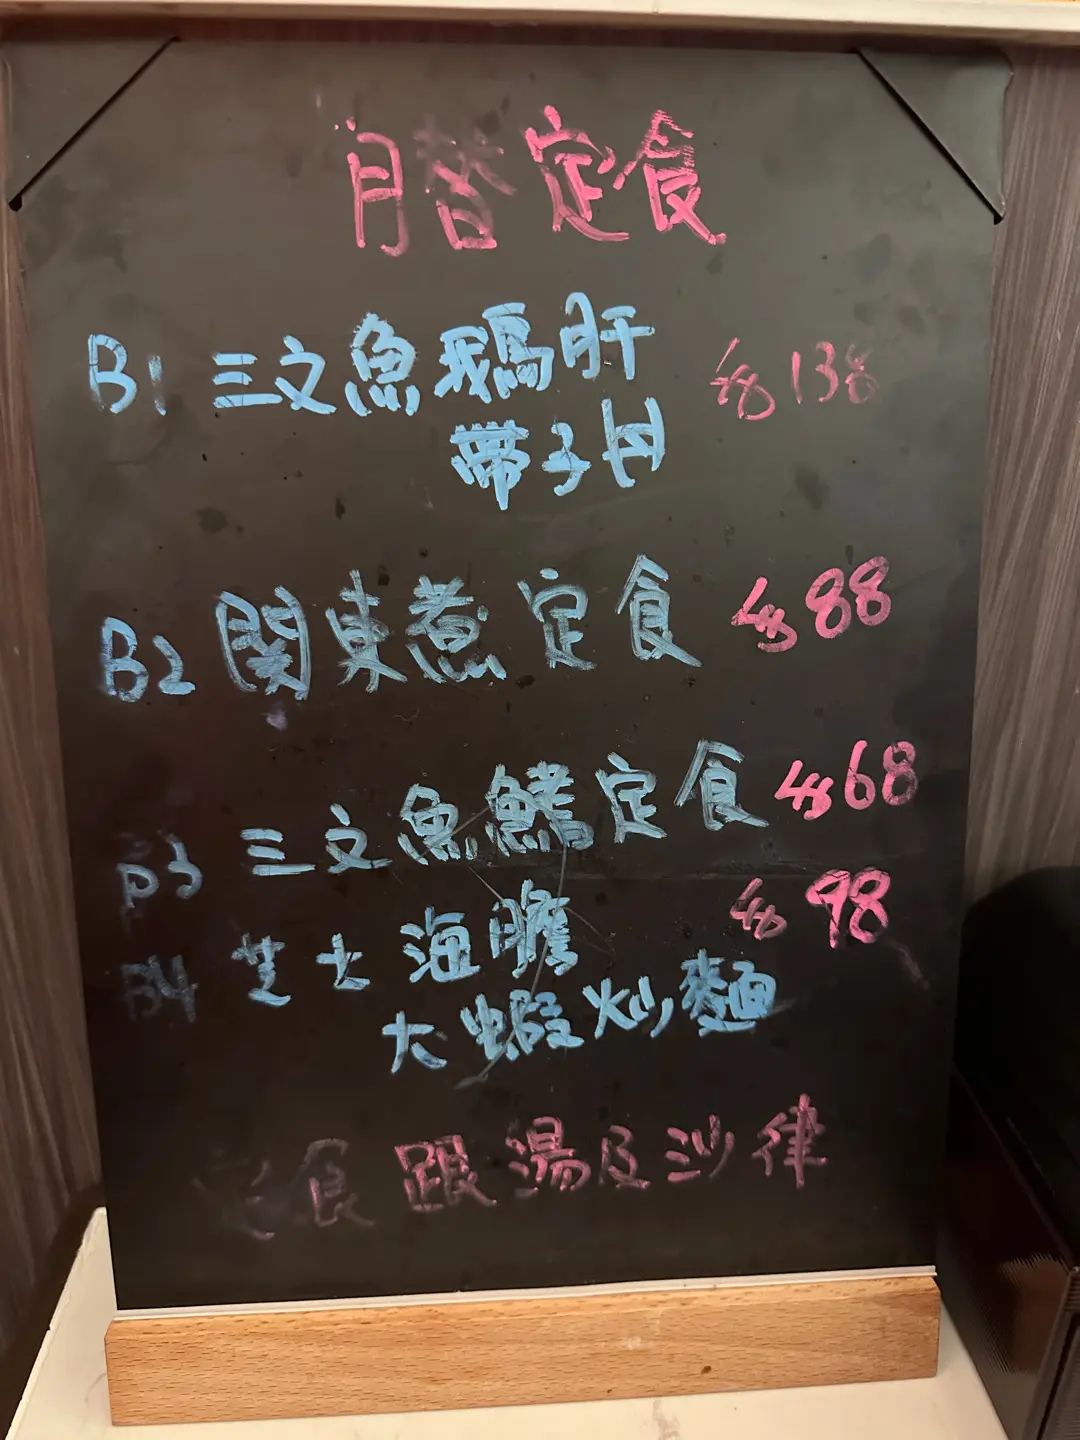 月替定食
B1 三文魚鵝肝 $138
帶子丼
B2 関東煮定食 $88
B3 三文魚鰭定食 $68
B4 芝士海膽 $98
大蝦炒麵
定食跟湯及沙律